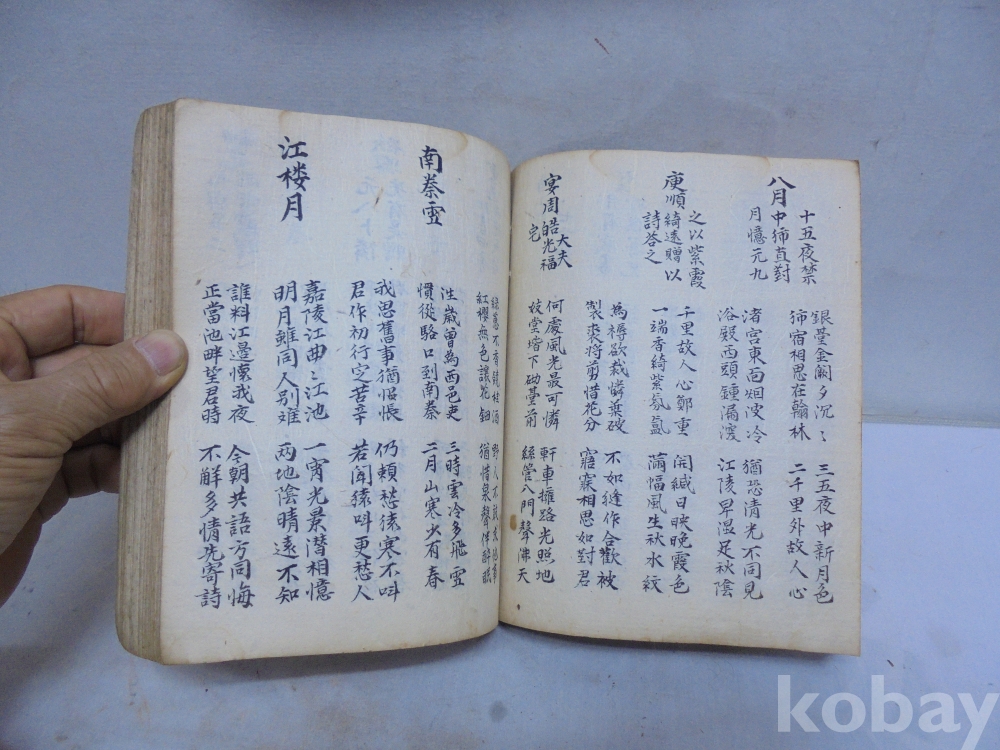 八月
十五夜禁
中独直對
月憶元九
銀臺金闕夕沉〻
独宿相思在翰林
三五夜中新月色
二千里外故人心
渚宮東面烟波冷
浴殿西頭鍾漏深
猶恐清光不同見
江陵卑湿足秋陰
庾順
之以紫霞
綺遠贈以
詩荅之
千里故人心鄭重
一端香綺紫氛氳
開緘日映晚霞色
滿幅風生秋水紋
為褥欲裁憐葉破
製裘將剪惜花分
不如縫作合歡被
寤寐相思如對君
宴周皓
大夫
光福
宅
何處風光最可憐
妓堂堦下砌臺前
軒車擁路光照地
絲管入門聲沸天
綠蕙不香饒桂酒
紅櫻無色讓花鈿
野人不敢求他事
猶惜泉聲伴醉眠
南秦雪
往歲曾為西邑吏
慣從駱口到南秦
三時雲冷多飛雪
二月山寒少有春
我思舊事猶惆悵
君作初行定苦辛
仍賴愁猿寒不叫
若聞猿叫更愁人
江楼月
嘉陵江曲〻江池
明月雖同人別難
一宵光景潛相憶
兩地陰晴遠不知
誰料江邊懷我夜
正當池畔望君時
今朝共語方同悔
不解多情先寄詩
kobay